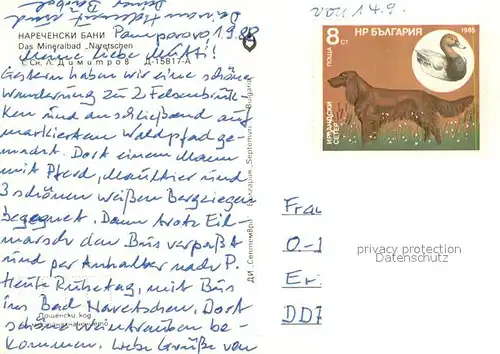 von 14.9.
НАРЕЧЕНСКИ БАНИ
Das Mineralbad „Naretschen
Сн. Л. Димитров Д-15817-А
Pamporovo, 1.9.88
Meine liebe Mutti!
Gestern haben wir eine schöne
Wanderung zu 2 Felsenbrük-
ken und anschließend auf
markiertem Waldpfad ge-
macht. Dort einem Mann
mit Pferd, Maultier und
3 schönen weißen Bergziegen
begegnet. Dann trotz Eil-
marsch den Bus verpaßt
und per Anhalter nach P.
Heute Ruhetag, mit Bus
ins Bad Naretschen. Dort
schöne Weintrauben be-
kommen. Liebe Grüße von
Пощенски код
ДИ „Септември
НР БЪЛГАРИЯ 1985
ПОЩА 8 СТ
ИРЛАНДСКИ СЕТЕР
Frau
O.-J
Er.
DD7
privacy protection
Datenschutz